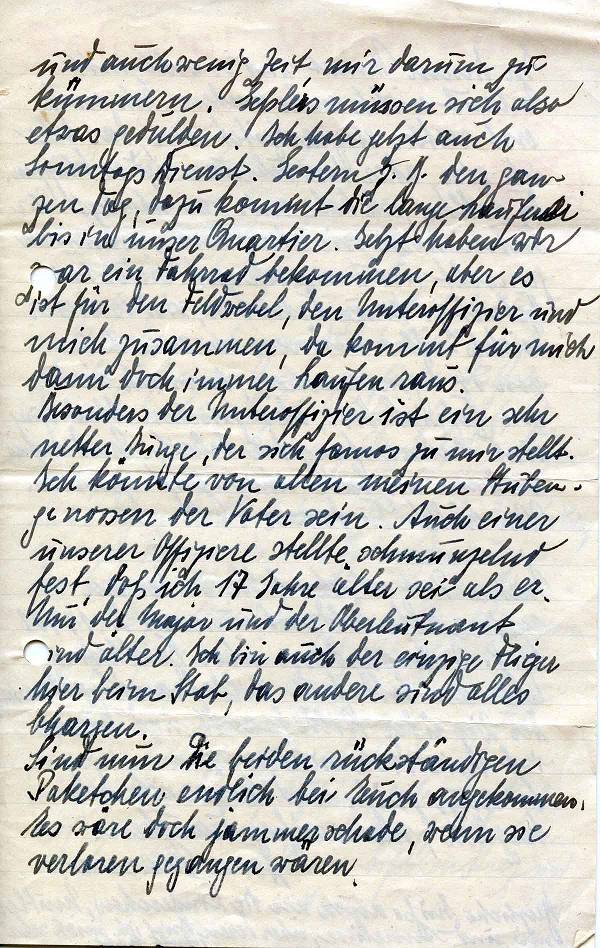 und auch wenig Zeit, mir darum zu
kümmern. müssen sich also
etwas gedulden. Ich habe jetzt auch
Sonntags Dienst. Gestern z. B. den gan-
zen Tag, dazu kommt die lange Lauferei
bis in unser Quartier. Jetzt haben wir
war ein Fahrrad bekommen, aber es
ist für den Feldwebel, den Unteroffizier und
mich zusammen, da kommt für mich
dann doch immer Laufen raus.
Besonders der Unteroffizier ist ein sehr
netter Junge, der sich famos zu mir stellt.
Ich könnte von allen meinen Stuben-
genossen der Vater sein. Auch einer
unserer Offiziere stellte schmunzelnd
fest, daß ich 17 Jahre älter sei als er.
Nur der Major und der Oberleutnant
sind älter. Ich bin auch der einzige Flieger
hier beim Stab, das andere sind alles
Chargen.
Sind nun die beiden rückständigen
Paketchen endlich bei Euch angekommen.
Es wäre doch jammerschade, wenn sie
verloren gegangen wären.